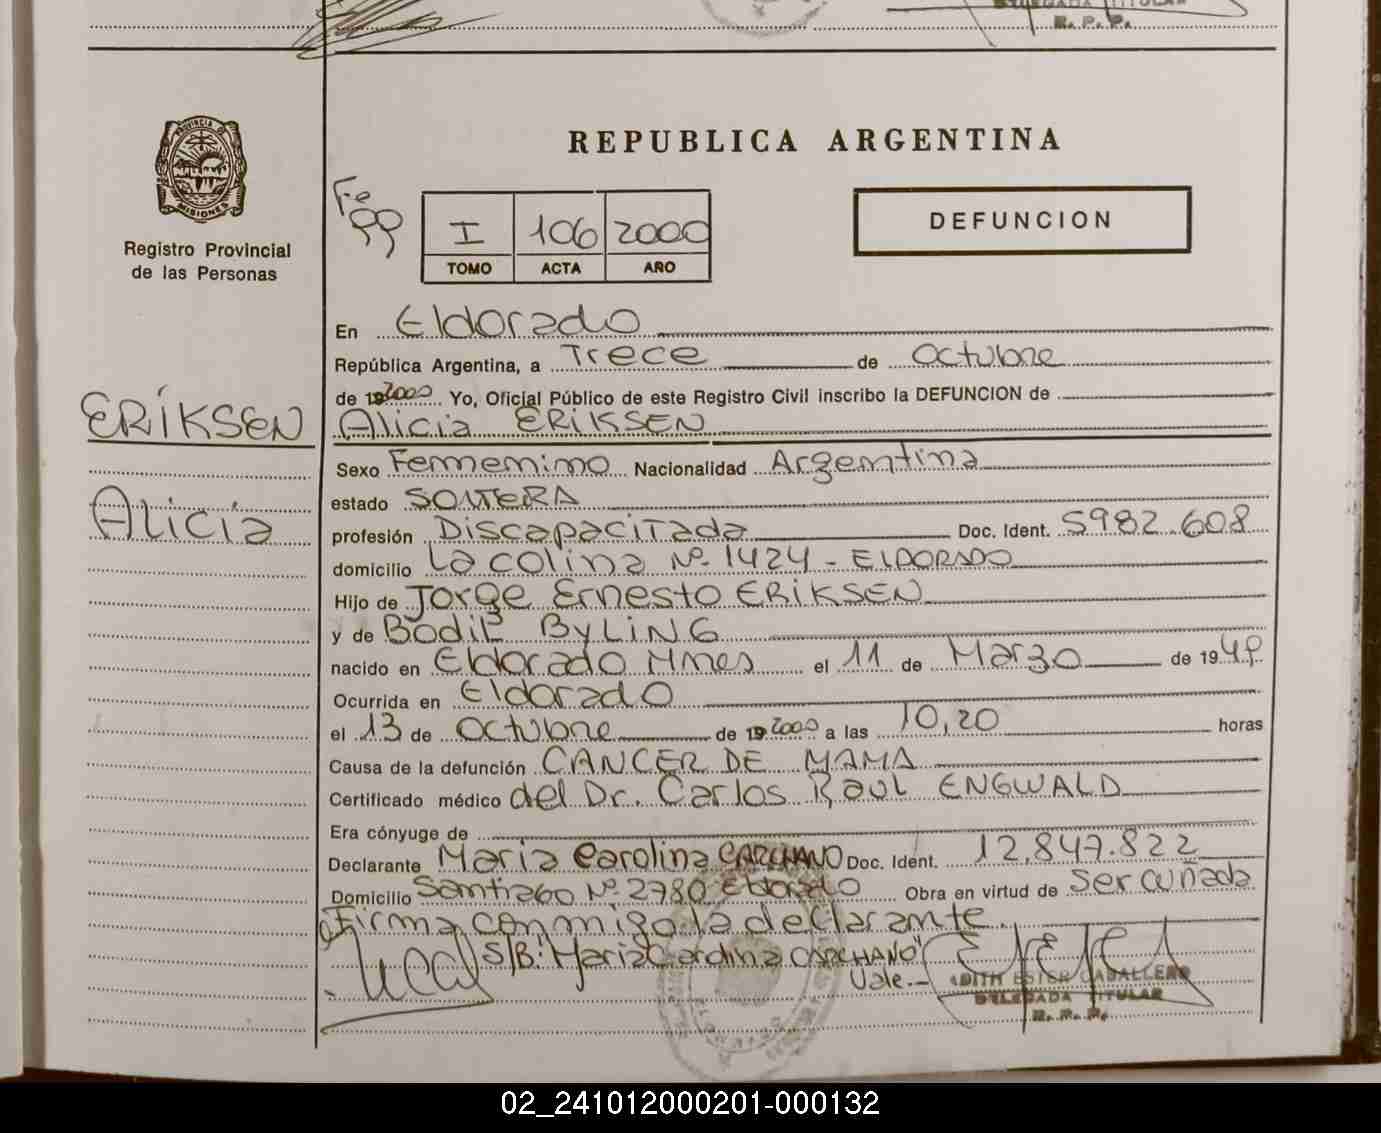 DELEGADA TITULAR
R. P. P.
PROVINCIA DE
MISIONES
Registro Provincial
de las Personas
REPUBLICA ARGENTINA
Fº 99
I 106 2000
TOMO ACTA AÑO
DEFUNCION
ERÍKSEN
Alicia
En Eldorado
República Argentina, a Trece de Octubre
de 192000 Yo, Oficial Público de este Registro Civil inscribo la DEFUNCION de
Alicia ERIKSEN
Sexo Femenino Nacionalidad Argentina
estado SOLTERA
profesión Discapacitada Doc. Ident. 5982.608
domicilio La colina Nº 1424 - ELDORADO
Hijo de Jorge Ernesto ERIKSEN
y de Bodil BYLING
nacido en Eldorado Mnes el 11 de Marzo de 1949
Ocurrida en Eldorado
el 13 de Octubre de 192000 a las 10,20 horas
Causa de la defunción CANCER DE MAMA
Certificado médico del Dr. Carlos Raul ENGWALD
Era cónyuge de
Declarante Maria Carolina CARCHANO Doc. Ident. 12.847.822
Domicilio Santiago Nº 2780 Eldorado Obra en virtud de ser cuñada
Firma conmigo la declarante.
S/B: Maria Carolina CARCHANO"
Vale.-
EDITH ESTER CABALLERO
DELEGADA TITULAR
R. P. P.
02_241012000201-000132